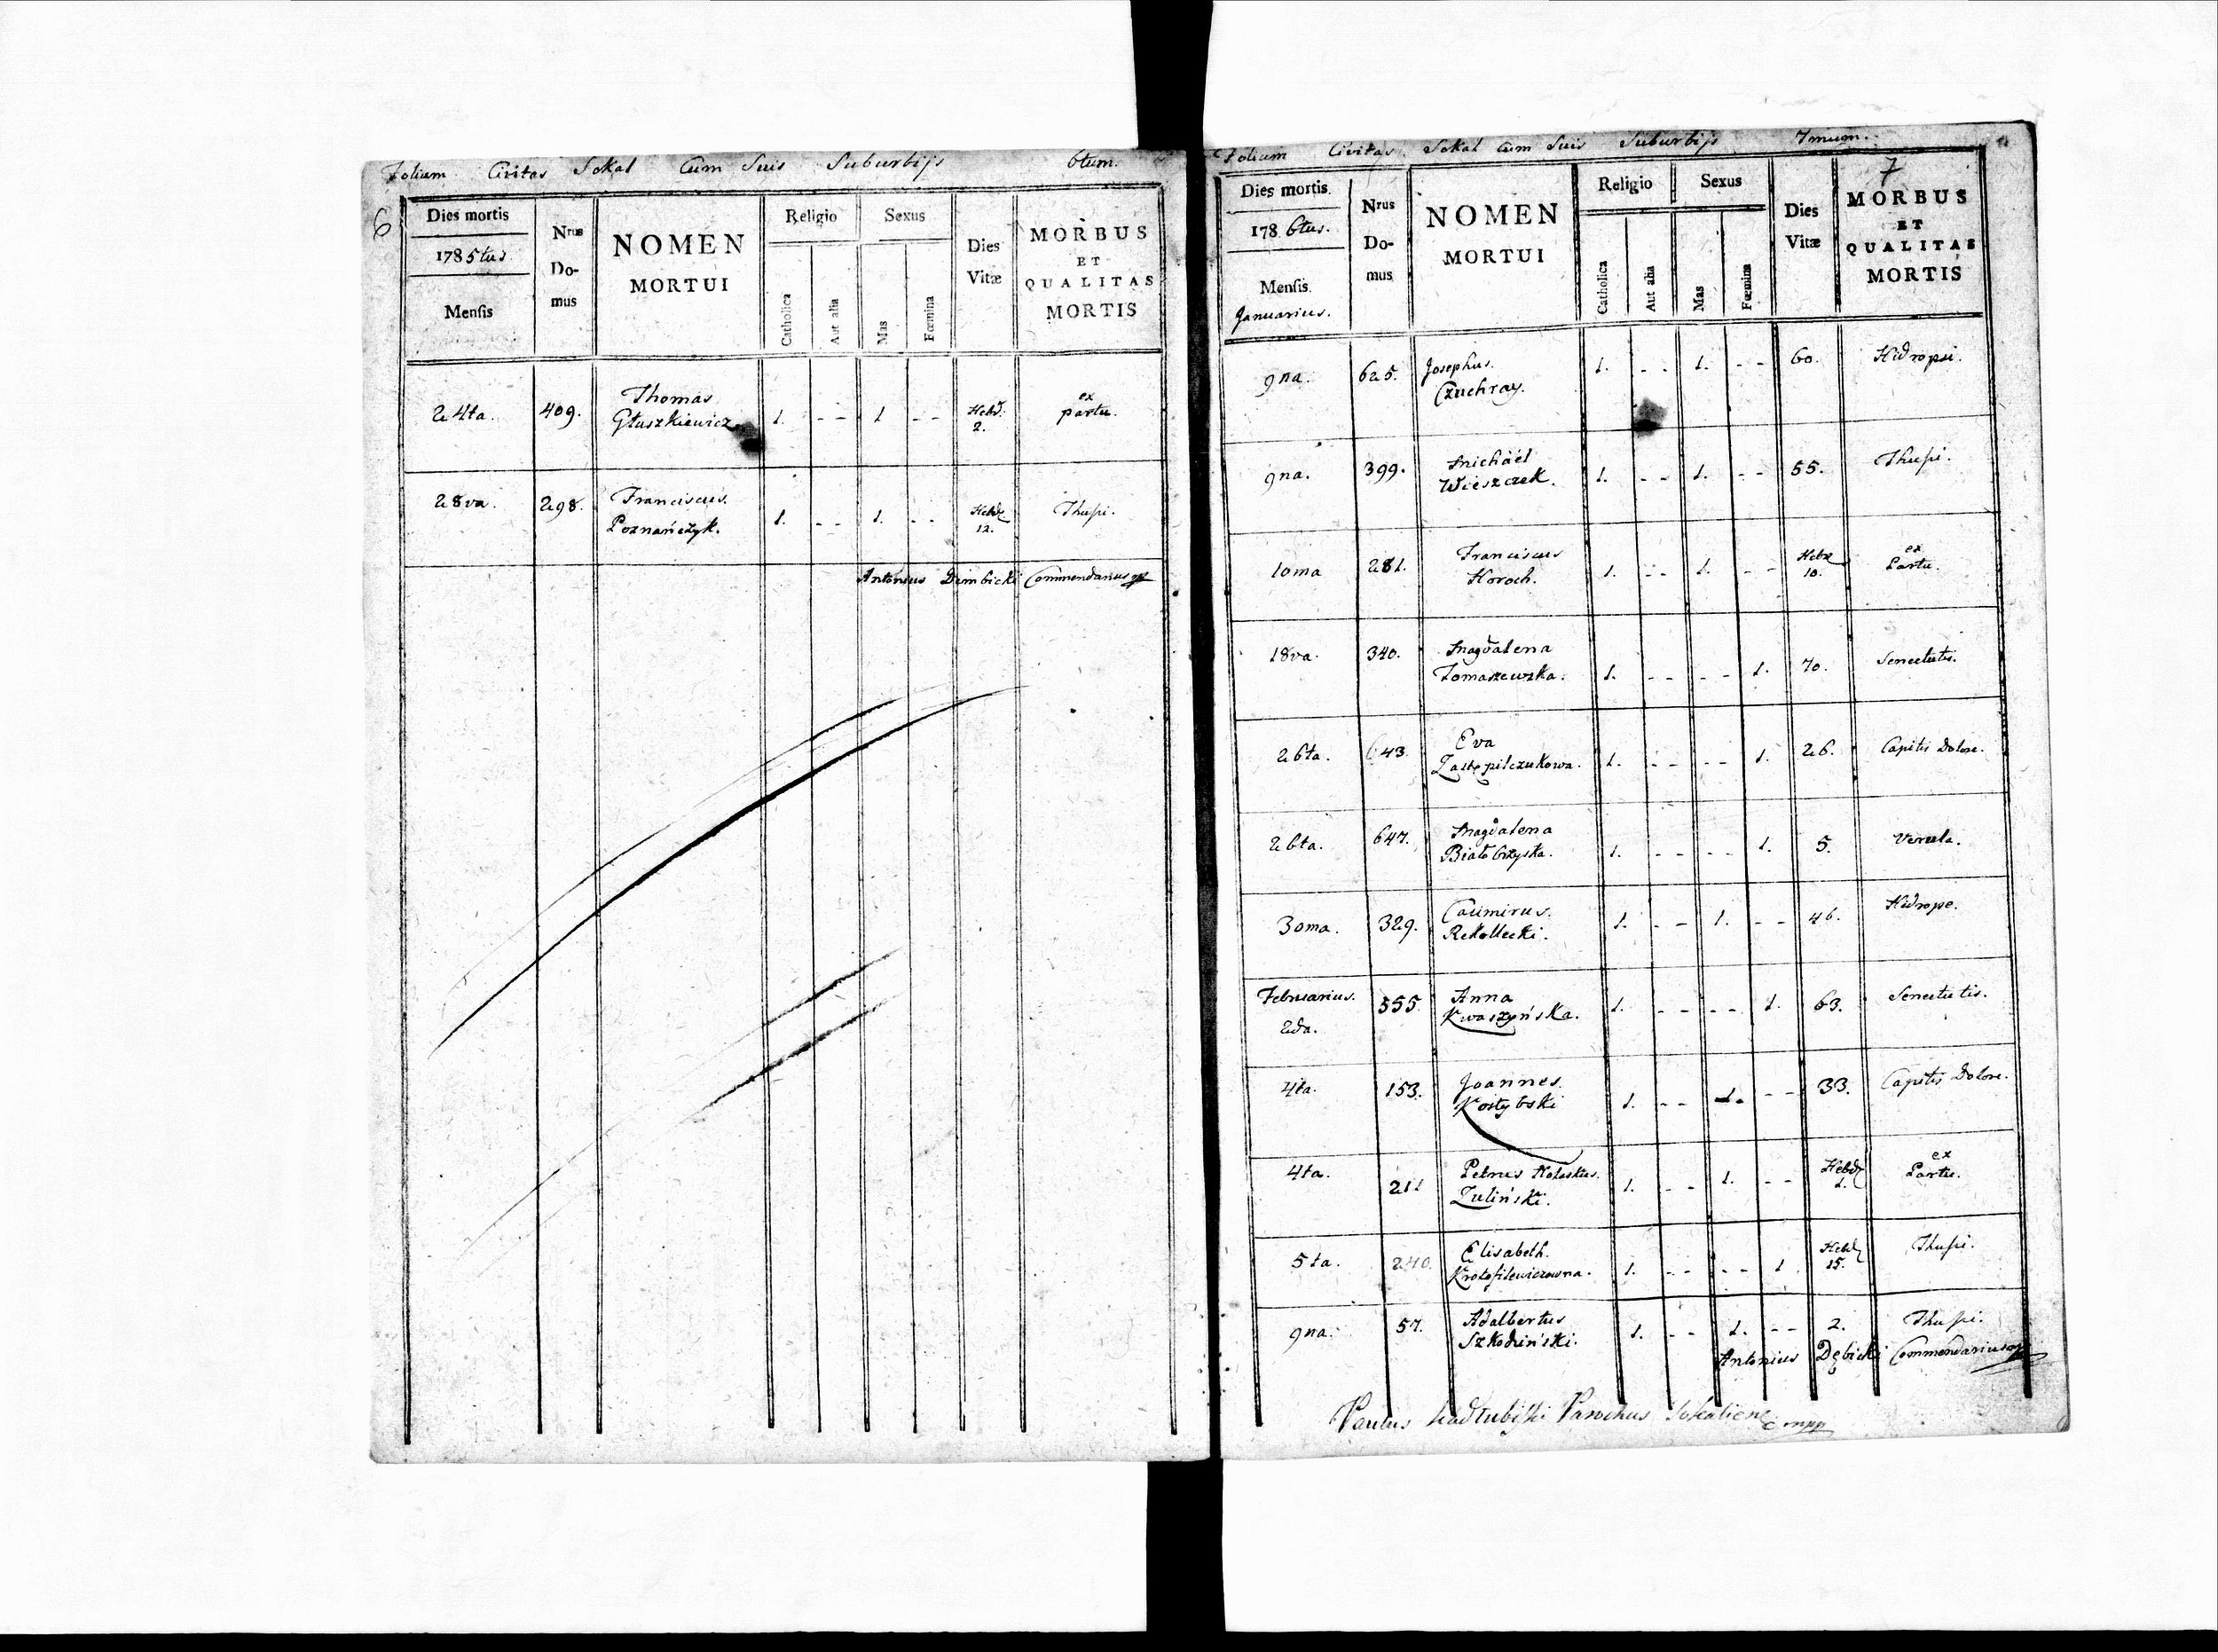 Folium Civitas Sokal Cum Suis Suburbijs 6tum.
6
Dies mortis
1785tus
Mensis
Nrus Do-mus
NOMEN
MORTUI
Religio
Catholica
Aut alia
Sexus
Mas
Fœmina
Dies
Vitæ
MORBUS
ET
QUALITAS
MORTIS
24ta. 409. Thomas Głuszkiewicz. 1. - - 1 - - Hebd. 2. ex partu.
28va. 298. Franciscus. Poznańczyk. 1. - - 1. - - Hebd. 12. Thusi.
Antonius Dembicki Commendarius
Folium Civitas Sokal Cum Suis Suburbijs 7mum.
7
Dies mortis.
178 6tus.
Mensis.
Januarius.
Nrus
Do-
mus
NOMEN
MORTUI
Religio
Catholica
Aut alia
Sexus
Mas
Fœmina
Dies
Vitæ
MORBUS
ET
QUALITAS
MORTIS
9na. 625. Josephus. Czuchray. 1. - - 1. - - 60. Hidropsi.
9na. 399. Michaël Wieszczek. 1. - - 1. - - 55. Thusi.
10ma 281. Franciscus Horoch. 1. - - 1. - - 10. ex Partu.
18va. 340. Magdalena Tomaszewska. 1. - - - - 1. 70. Senectutis.
26ta. 643. Eva 1. - - - - 1. 26. Capitis Dolore.
26ta. 647. Magdalena Białobrzyska. 1. - - - - 1. 5. Verula.
30ma. 329. Casimirus. Rekollecki. 1. - - 1. - - 46. Hidrope.
Februarius. 2da. 555. Anna Kwaszyńska. 1. - - - - 1. 63. Senectutis.
4ta. 153. Joannes. Kostybski 1. - - 1. - - 33. Capitis Dolore.
4ta. 211 Petrus Zuliński. 1. - - 1. - - Hebd 1. ex Partu.
5ta. 240. Elisabeth. Krotofilewiczowna. 1. - - - - 1 Hebd 15. Thusi.
9na. 57. Adalbertus Szkodziński. 1. - - 1. - - 2. Thusi.
Antonius Dębicki Commendarius
Paulus Parochus mpp